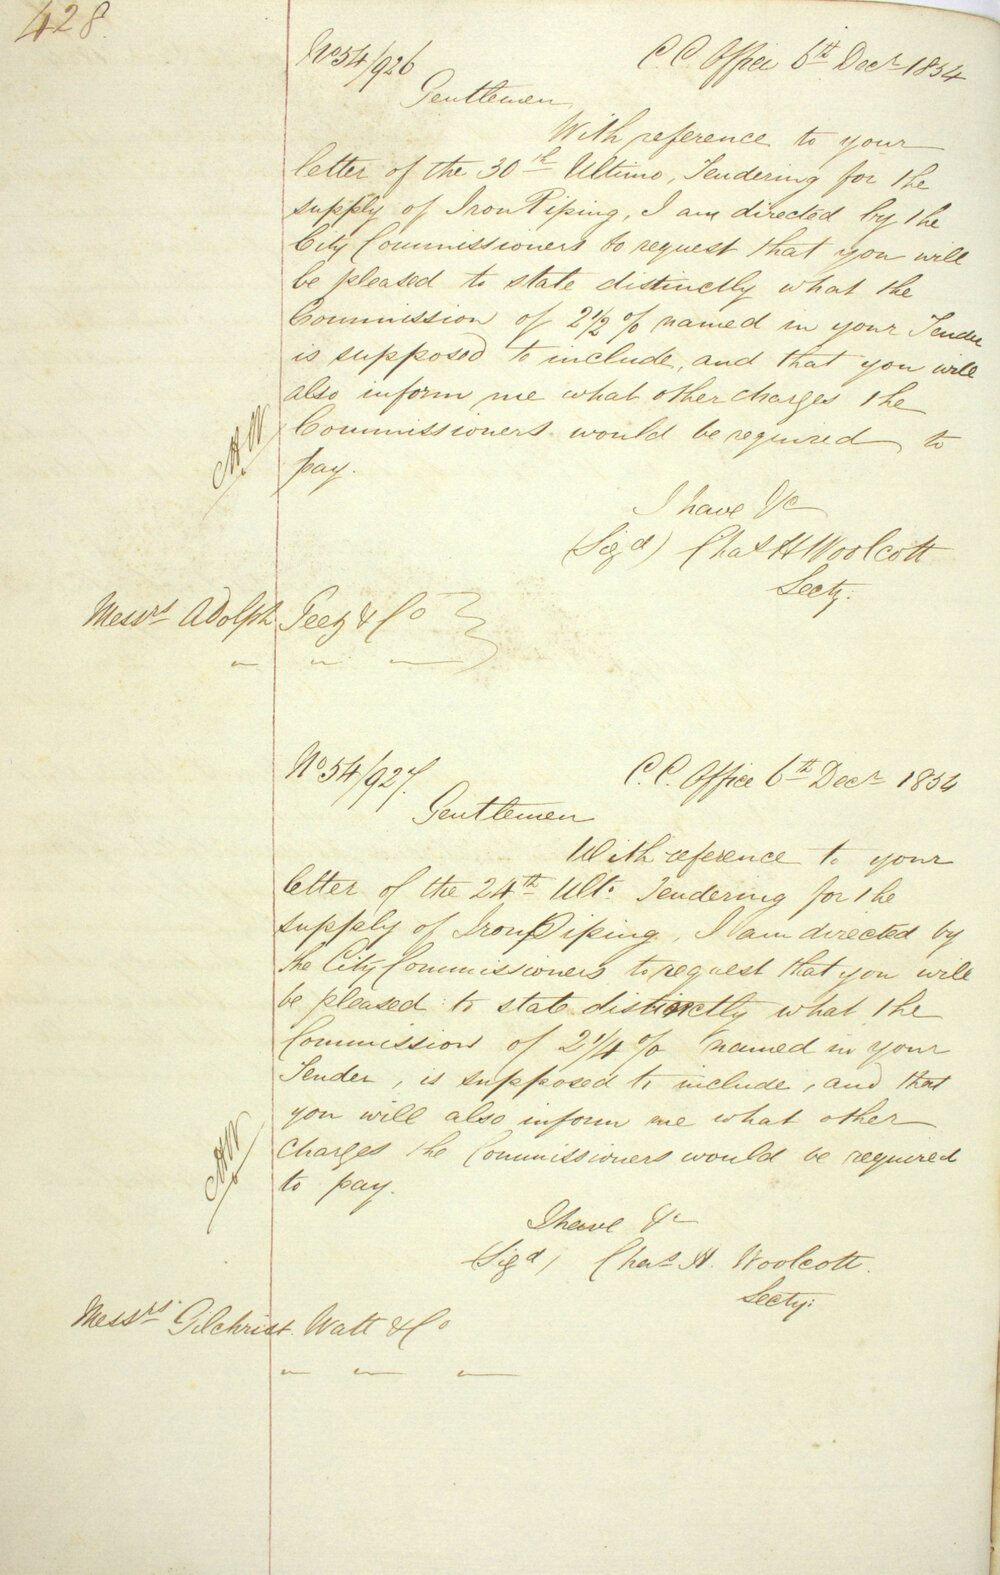 428.
No 54/926
C.C. Office 6th Decr 1854
Gentlemen
With reference to your
letter of the 30th Ultimo, Tendering for the
supply of Iron Piping, I am directed by the
City Commissioners to request that you will
be pleased to state distinctly what the
Commission of 2 1/2 % named in your Tender
is supposed to include, and that you will
also inform me what other charges the
Commissioners would be required to
pay.
I have &c
(Sigd) Chas H Woolcott
Secty.
Messrs Adolph Feez & Co
No 54/927.
C.C. Office 6th Decr 1854
Gentlemen
With reference to your
letter of the 24th Ulto. Tendering for the
supply of Iron Piping, I am directed by
the City Commissioners to request that you will
be pleased to state distinctly what the
Commission of 2 1/4 % named in your
Tender, is supposed to include, and that
you will also inform me what other
charges the Commissioners would be required
to pay.
I have &c
(Sigd) Chas H. Woolcott.
Secty:
Messrs. Gilchrist Watt & Co